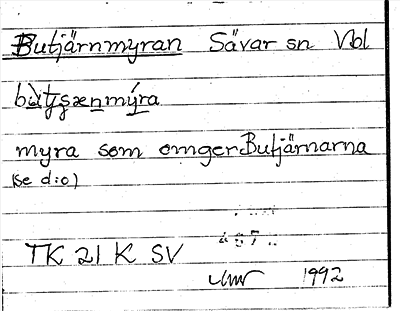 Butjärnmyran Sävar sn Vbl
myra som omger Butjärnarna
(se d:o)
TK 21 K SV
1992